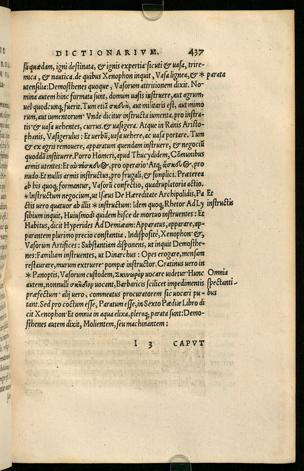 DICTIONARIVM. 437
sĩquædam, igni destinata, & ignis expertia: sicuti & uasa, trire-
mica, & nautica. de quibus Xenophon inquit, Vasa lignea, & * parata
utensilia: Demosthenes quoque, Vasorum attritionem dixit. No-
mina autem hinc formata sunt, domum uasis instruere, aut agrum
uel quodcunq; fuerit. Tum etiā aut militaris est, aut nimo
rum, aut iumentorum Vnde dicitur instructa iumenta, pro instra-
tis & uasa uehentes, currus, & uasigera. Atque in Ranis Aristo-
phanis, Vasigerulus: Et uerbū, uasa uehere, ac uasa portare. Tum
& ex agris remouere, apparatum quendam instruere, & negociū
quoddā instituere. Porro Homeri, apud Thucydidem, Cōmunibus
armis utentes: Et pro operario Atq; & pro
nudo: Et nullis armis instructus, pro frugali, & simplici. Præterea
ab his quoq; formantur, Vasorū confectio, quadruplatoria actio.
* instructum negocium, ut Isæus De Hæreditate Archipolidis, Pa Et
cti uero quatuor ab illis * instructum: Idem quoq; Rhetor Ad Ly instructis
sibium inquit, Huiusmodi quidem hisce de mortuo instruentes: Et
Habitus, dicit Hyperides Ad Demiam: Apparatus, apparare, ap-
parantem plurimo precio constantia, Indispositè, Xenophon, &
Vasorum Artifices: Substantiam disponens, ut inquit Demosthe-
nes: Familiam instruentem, ut Dinarchus: Opes erogare, mensam
restaurare, murum extruere: pompæ instructor. Cratinus uero in
* Panoptis, Vasorum custodem, uocare uidetur: Hunc Omnia
autem, nonnulli uocāt, Barbaricis scilicet impedimentis spectanti-
præfectum: alij uero, commeatus procuratorem sic uocari pu- bus
tant. Sed pro coctum esse, Paratum esse, in Sexto Pædiæ Libro di
cit Xenophon: Et omnia in aqua elixa, pleraq; parata sunt: Demo-
sthenes autem dixit, Molientem, seu machinantem:
I 3 CAPVT